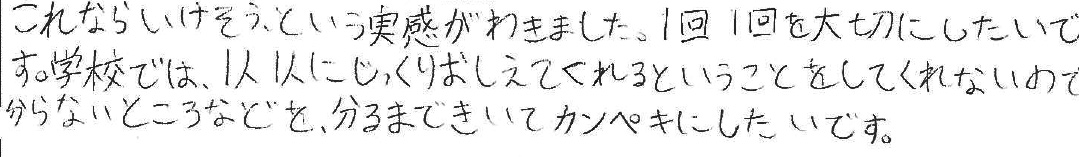 これならいけそう、という実感がわきました。1回1回を大切にしたいで
す。学校では、1人1人にじっくりおしえてくれるということをしてくれないので
分らないところなどを、分るまできいてカンペキにしたいです。